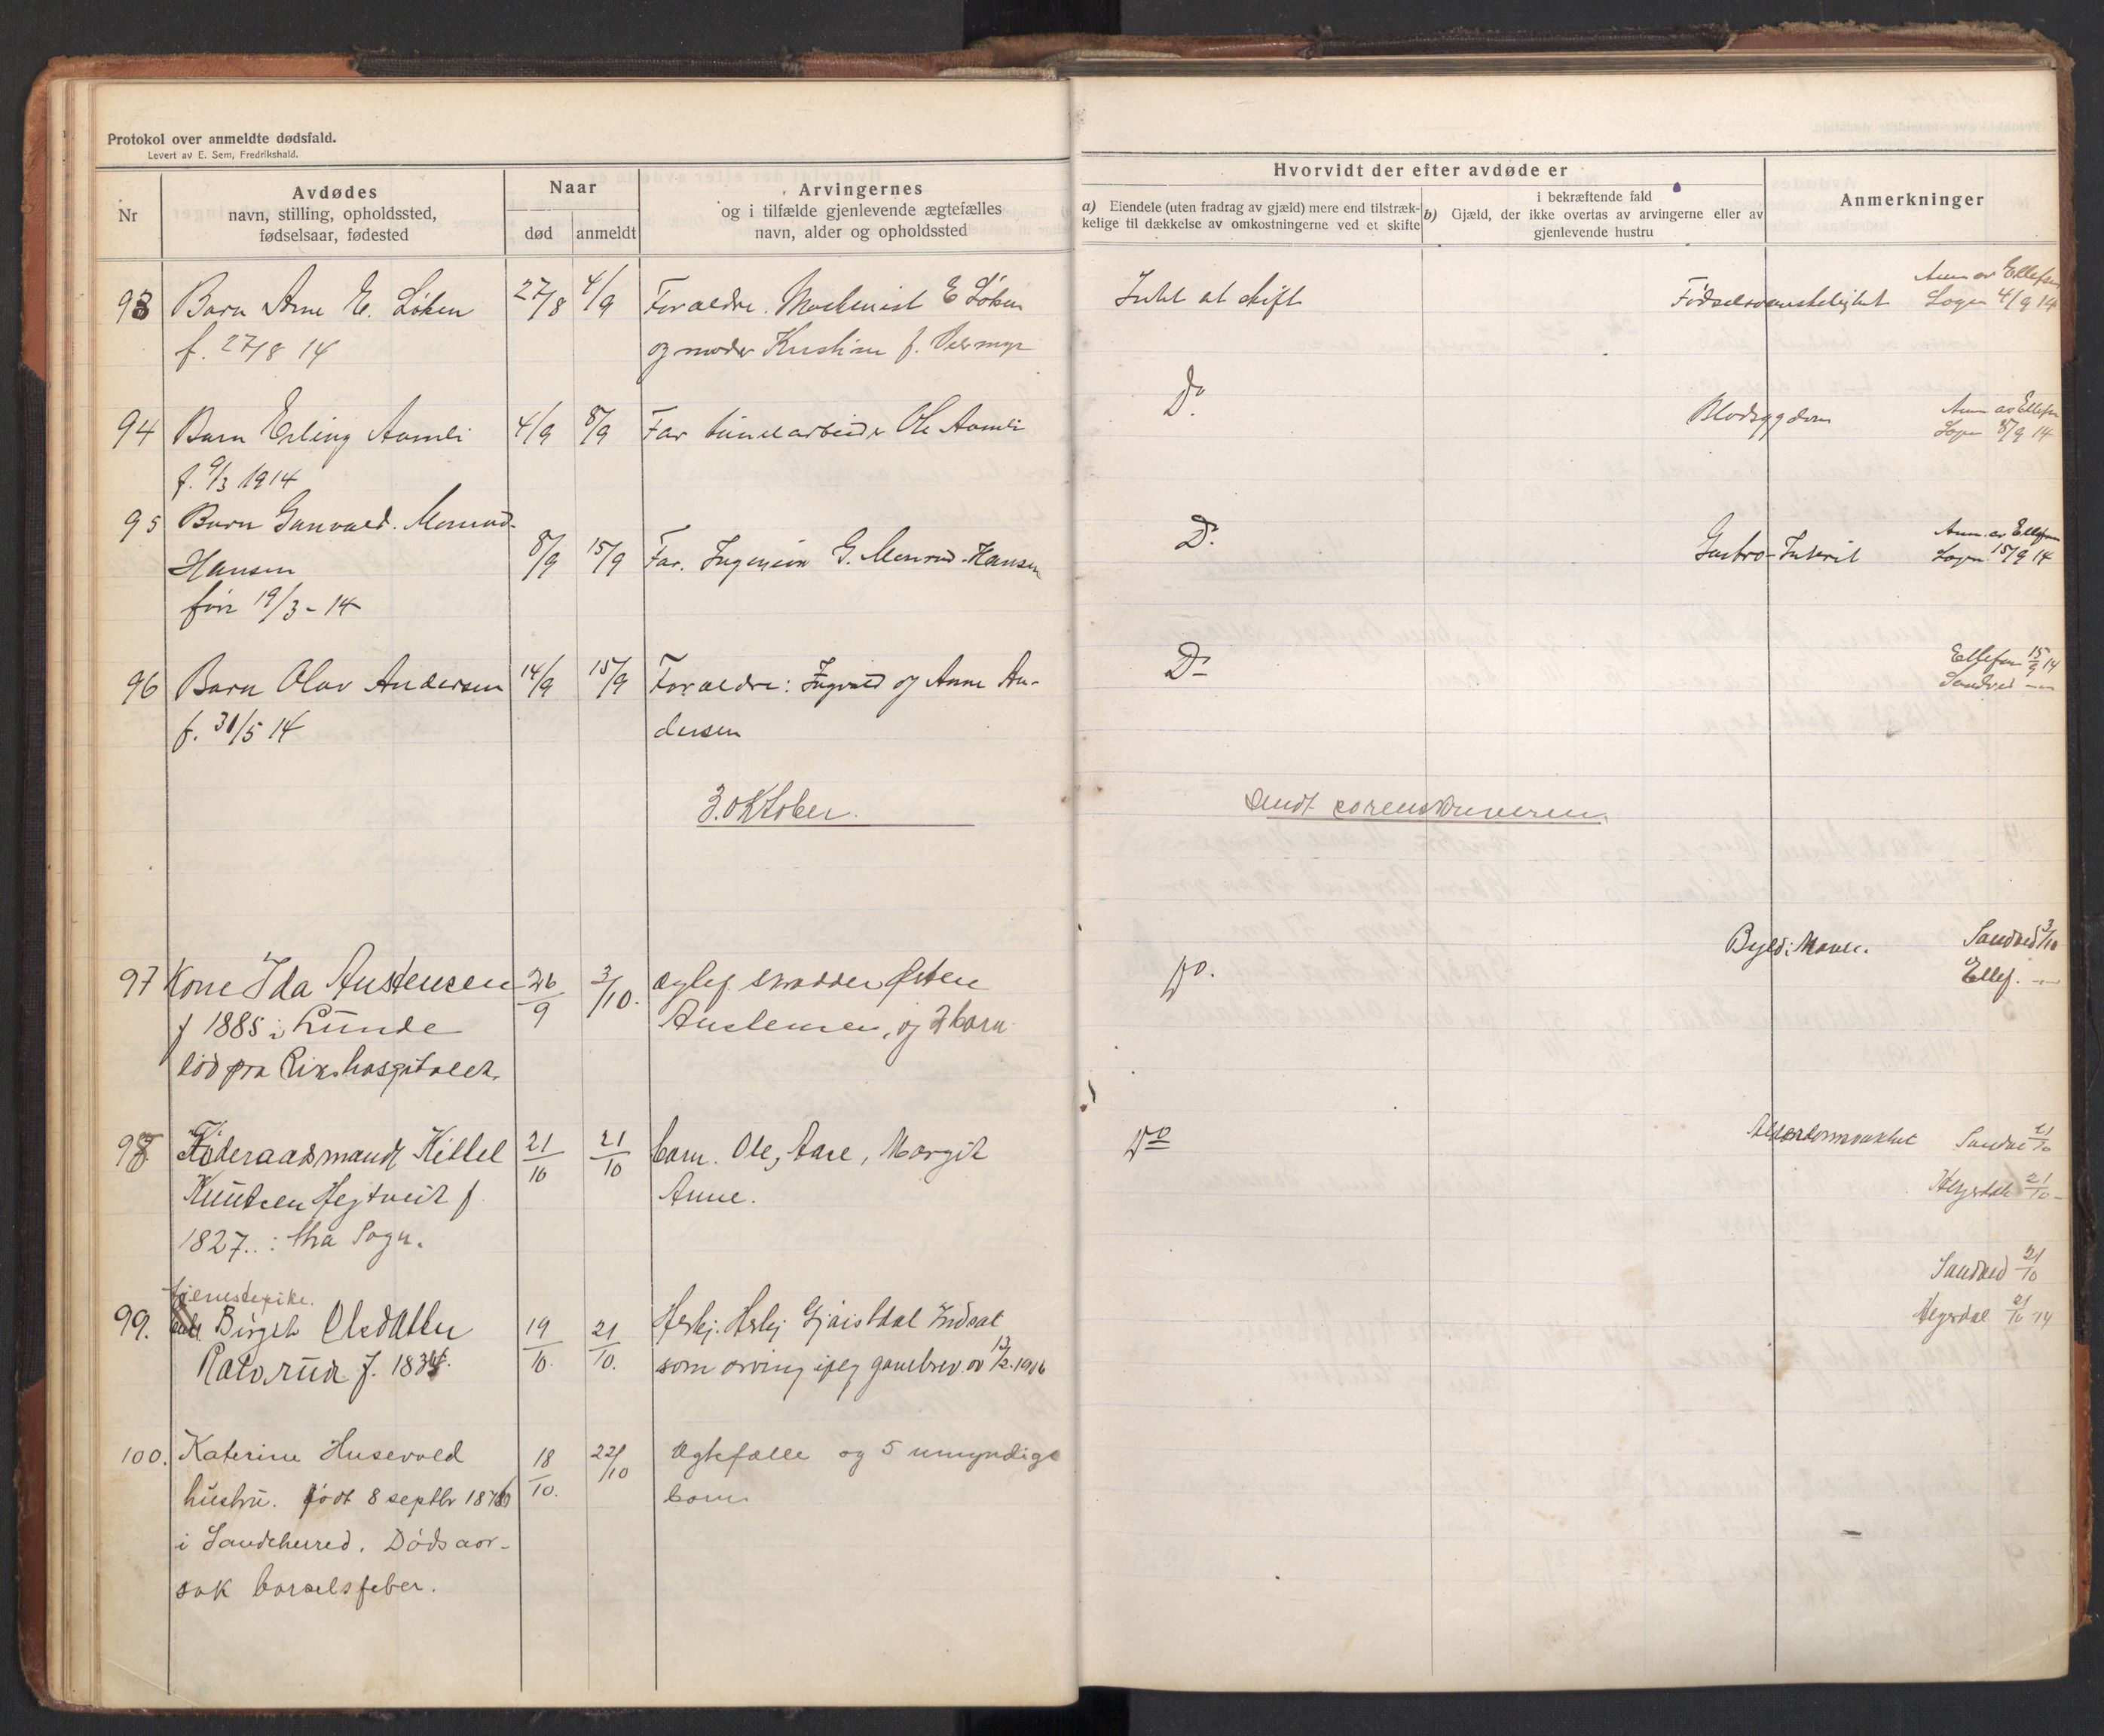 Protokol over anmeldte dødsfald.
Levert av E. Sem, Fredrikshald.
Nr
Avdødes
navn, stilling, opholdssted,
fødselsaar, fødested
Naar
død
anmeldt
Arvingernes
og i tilfælde gjenlevende ægtefælles
navn, alder og opholdssted
Hvorvidt der efter avdøde er
a) Eiendele (uten fradrag av gjæld) mere end tilstræk-
kelige til dækkelse av omkostningerne ved et skifte
b)
i bekræftende fald
Gjæld, der ikke overtas av arvingerne eller av
gjenlevende hustru
Anmerkninger
93 Barn Arne E. Löken 27/8 4/9 Forældre. Maskinist E Löken Intet at skift Födselsvanskelighet Anm av Ellefsen
f. 27/8 14 og moder Kristine f. Vermyr Logen 4/9 14
94 Barn Erling Aamli 4/9 8/9 Far tunelarbeider Ole Aamli Do Blodsygdom Anm av Ellefsen
f. 9/3 1914 Logen 8/9 14
95 Barn Gunvald. Monrad-
Hansen 8/9 15/9 Far. Ingeniör G. Monrad-Hansen Do Gastro-Interit Anm. av Ellefsen
før 19/3 - 14 Logen 15/9 14
96 Barn Olav Andersen 14/9 15/9 Forældre: Ingvald og Anne An- Do Ellefsen 15/9 14
f. 31/5 14 dersen Sandved
3. oktober. Sendt sorenskriveren.
97 Kone Ida Austensen 26/9 3/10. ægtef. skrædder Østen Do. Byld i Maven. Sandved 3/10
f 1885 i Lunde Austensen, og 2 barn Ellef.
död paa Rikshospitalet.
98 Föderaadsmand Kittel 21/10 21/10 barn. Ole, Aase, Margit Do Alderdomssvakhet Sandved 21/10
Knutsen Hegtveit f. Anne. Heysdal 21/10
1827.
tjenestepike. Sandved 21/10
99. Birgit Olsdatter 19/10. 21/10. Indsat Heysdal 21/10 14
f. 183 som arving gavebrev av 13/2. 1906
100. Katerine Husevold 18/10. 22/10 Ægtefælle og 5 umyndige
hustru. født 8 septbr 1876 barn
i Sandeherred. Dödsaar-
sak barselsfeber.